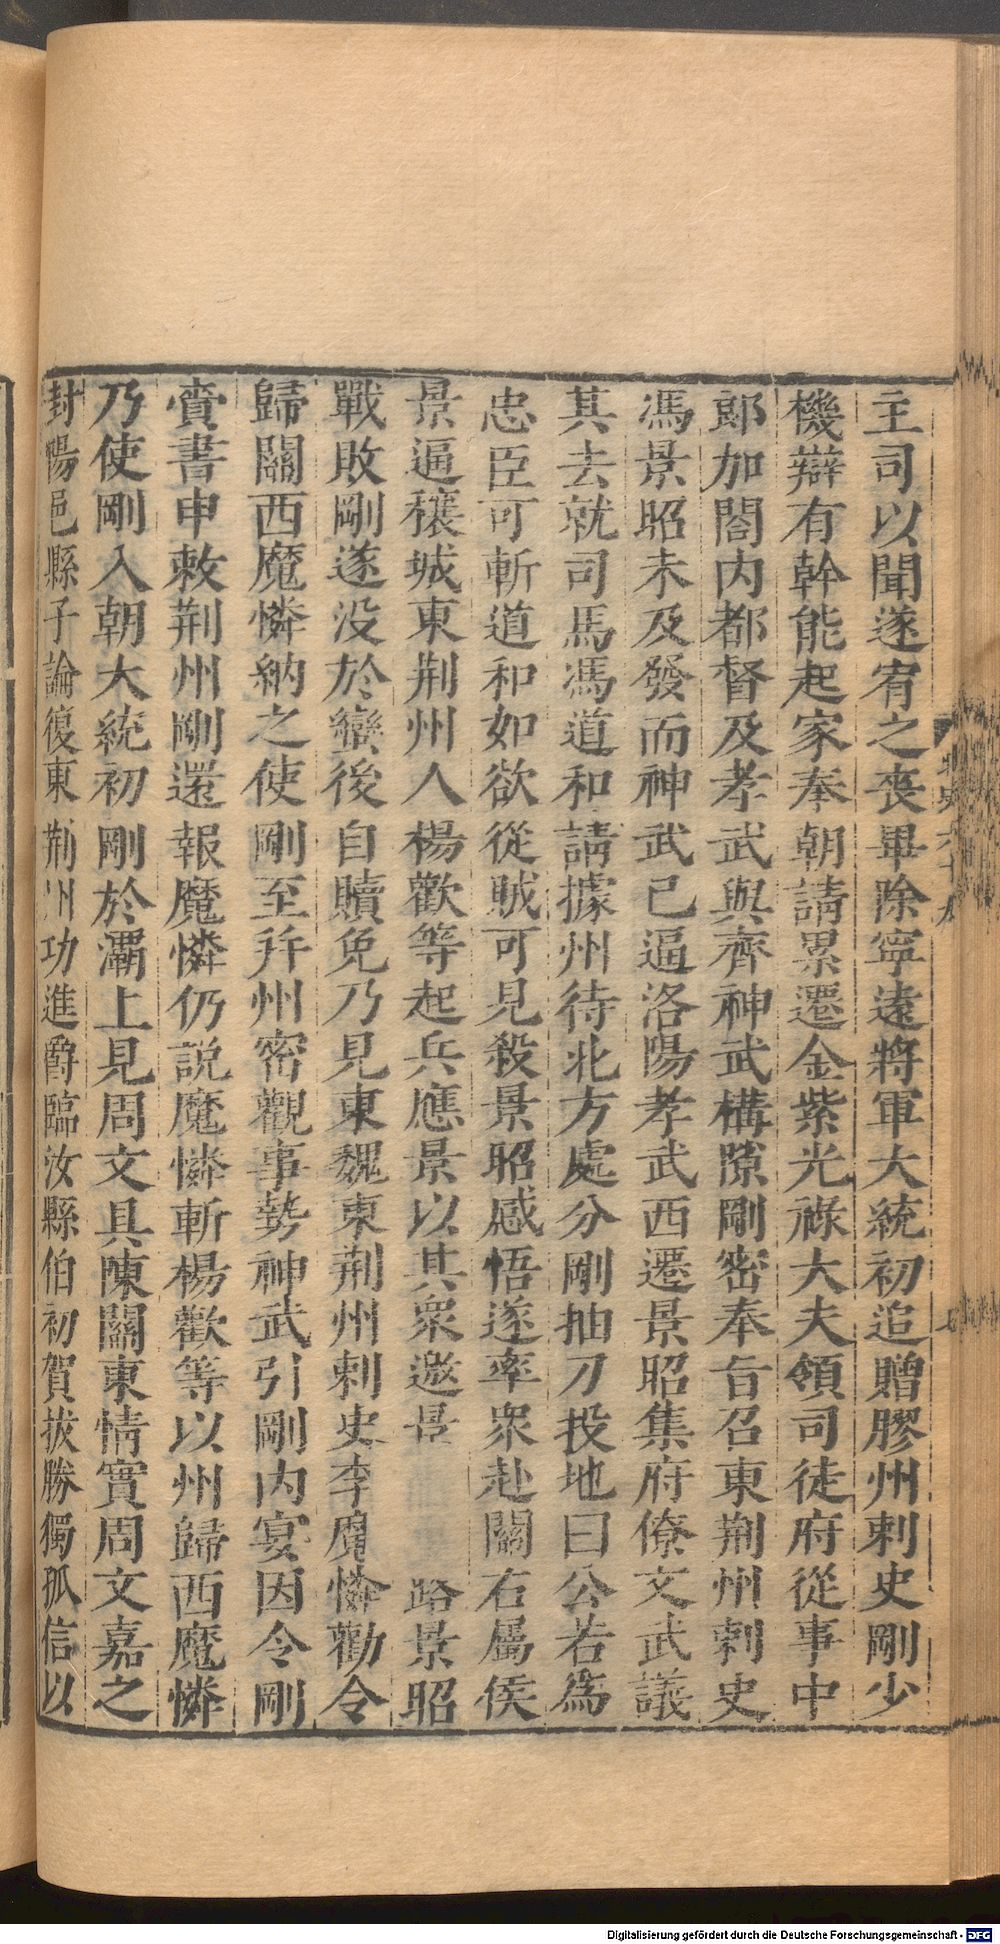 主司以聞遂宥之喪畢除寧遠將軍大統初追贈膠州刺史剛少
機辯有幹能起家奉朝請累遷金紫光祿大夫領司徒府從事中
郎加閤內都督及孝武與齊神武構隙剛密奉旨召東荆州刺史
馮景昭未及發而神武已逼洛陽孝武西遷景昭集府僚文武議
其去就司馬馮道和請據州待北方處分剛抽刀投地曰公若爲
忠臣可斬道和如欲從賊可見殺景昭感悟遂率衆赴關右屬侯
景逼穰城東荆州人楊歡等起兵應景以其衆邀景路景昭
戰敗剛遂没於蠻後自贖免乃見東魏東荆州刺史李魔憐勸令
歸關西魔憐納之使剛至并州密觀事勢神武引剛內宴因令剛
賫書申敕荆州剛還報魔憐仍説魔憐斬楊歡等以州歸西魔憐
乃使剛入朝大統初剛於灞上見周文具陳關東情實周文嘉之
封陽邑縣子論復東荆州功進爵臨汝縣伯初賀拔勝獨孤信以
Digitalisierung gefördert durch die Deutsche Forschungsgemeinschaft - DFG